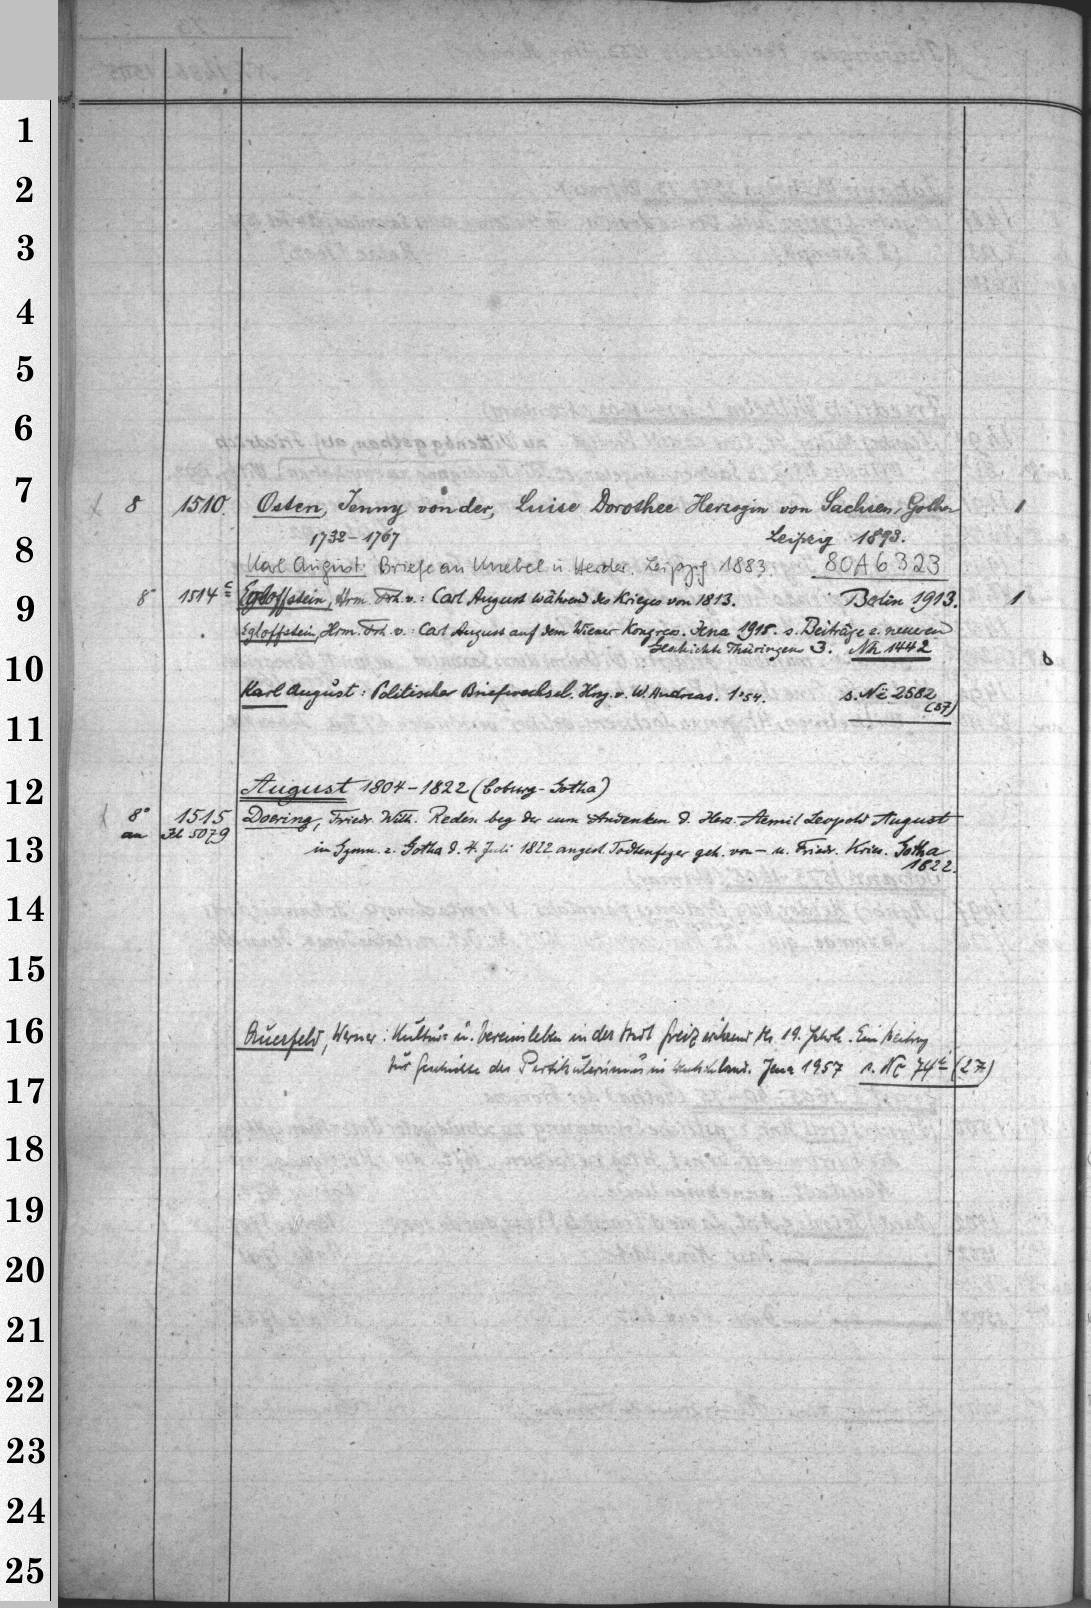 1
2
3
4
5
6
7
8
9
10
11
12
13
14
15
16
17
18
19
20
21
22
23
24
25
8 1510. Osten, Jenny von der, Luise Dorothee Herzogin von Sachsen-Gotha 1
1732-1767 Leipzig 1893.
Karl August: Briefe an Knebel u. Herder. Leipzig 1883. 80A6323
8° 1514c Egloffstein, Hrm. Frh. v.: Carl August während des Krieges von 1813. Berlin 1913. 1
Egloffstein, Hrm. Frh. v.: Carl August auf dem Wiener Kongress. Jena 1915. s. Beiträge z. neueren
Geschichte Thüringens 3. Nh 1442
Karl August: Politischer Briefwechsel. Hrsg. v. W. Andreas. 1.54. s. Nē 2582
(37)
August 1804-1822 (Coburg-Gotha)
8° 1515 Doering, Friedr. Wilh. Reden bey der zum Andenken d. Herz. Aemil Leopold August
an 5079 im Gymn. z. Gotha d. 4. Juli 1822 angest. Todtenfeyer geh. von - u. Friedr. Kries. Gotha
1822.
Querfeld, Werner: Kultur- u. Vereinsleben in der Stadt Greiz während des 19. Jahrh. Ein Beitrag
zur Geschichte des Partikularismus in Deutschland. Jena 1957 s. Nc 74 (27)